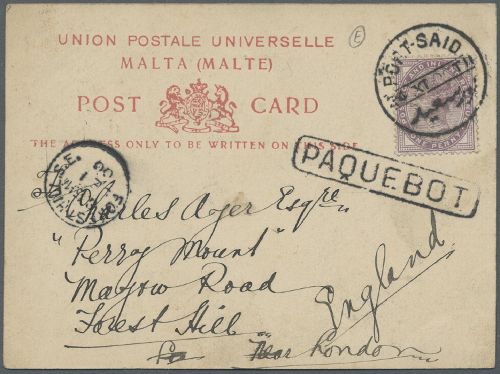 UNION POSTALE UNIVERSELLE
MALTA (MALTE)
POST CARD
THE ADDRESS ONLY TO BE WRITTEN ON THIS SIDE
E
PORT-SAID
PAQUEBOT
FOREST HILL S.E.
Charles Ager Esqre
"Perry Mount"
Mayow Road
Forest Hill
Near London
England